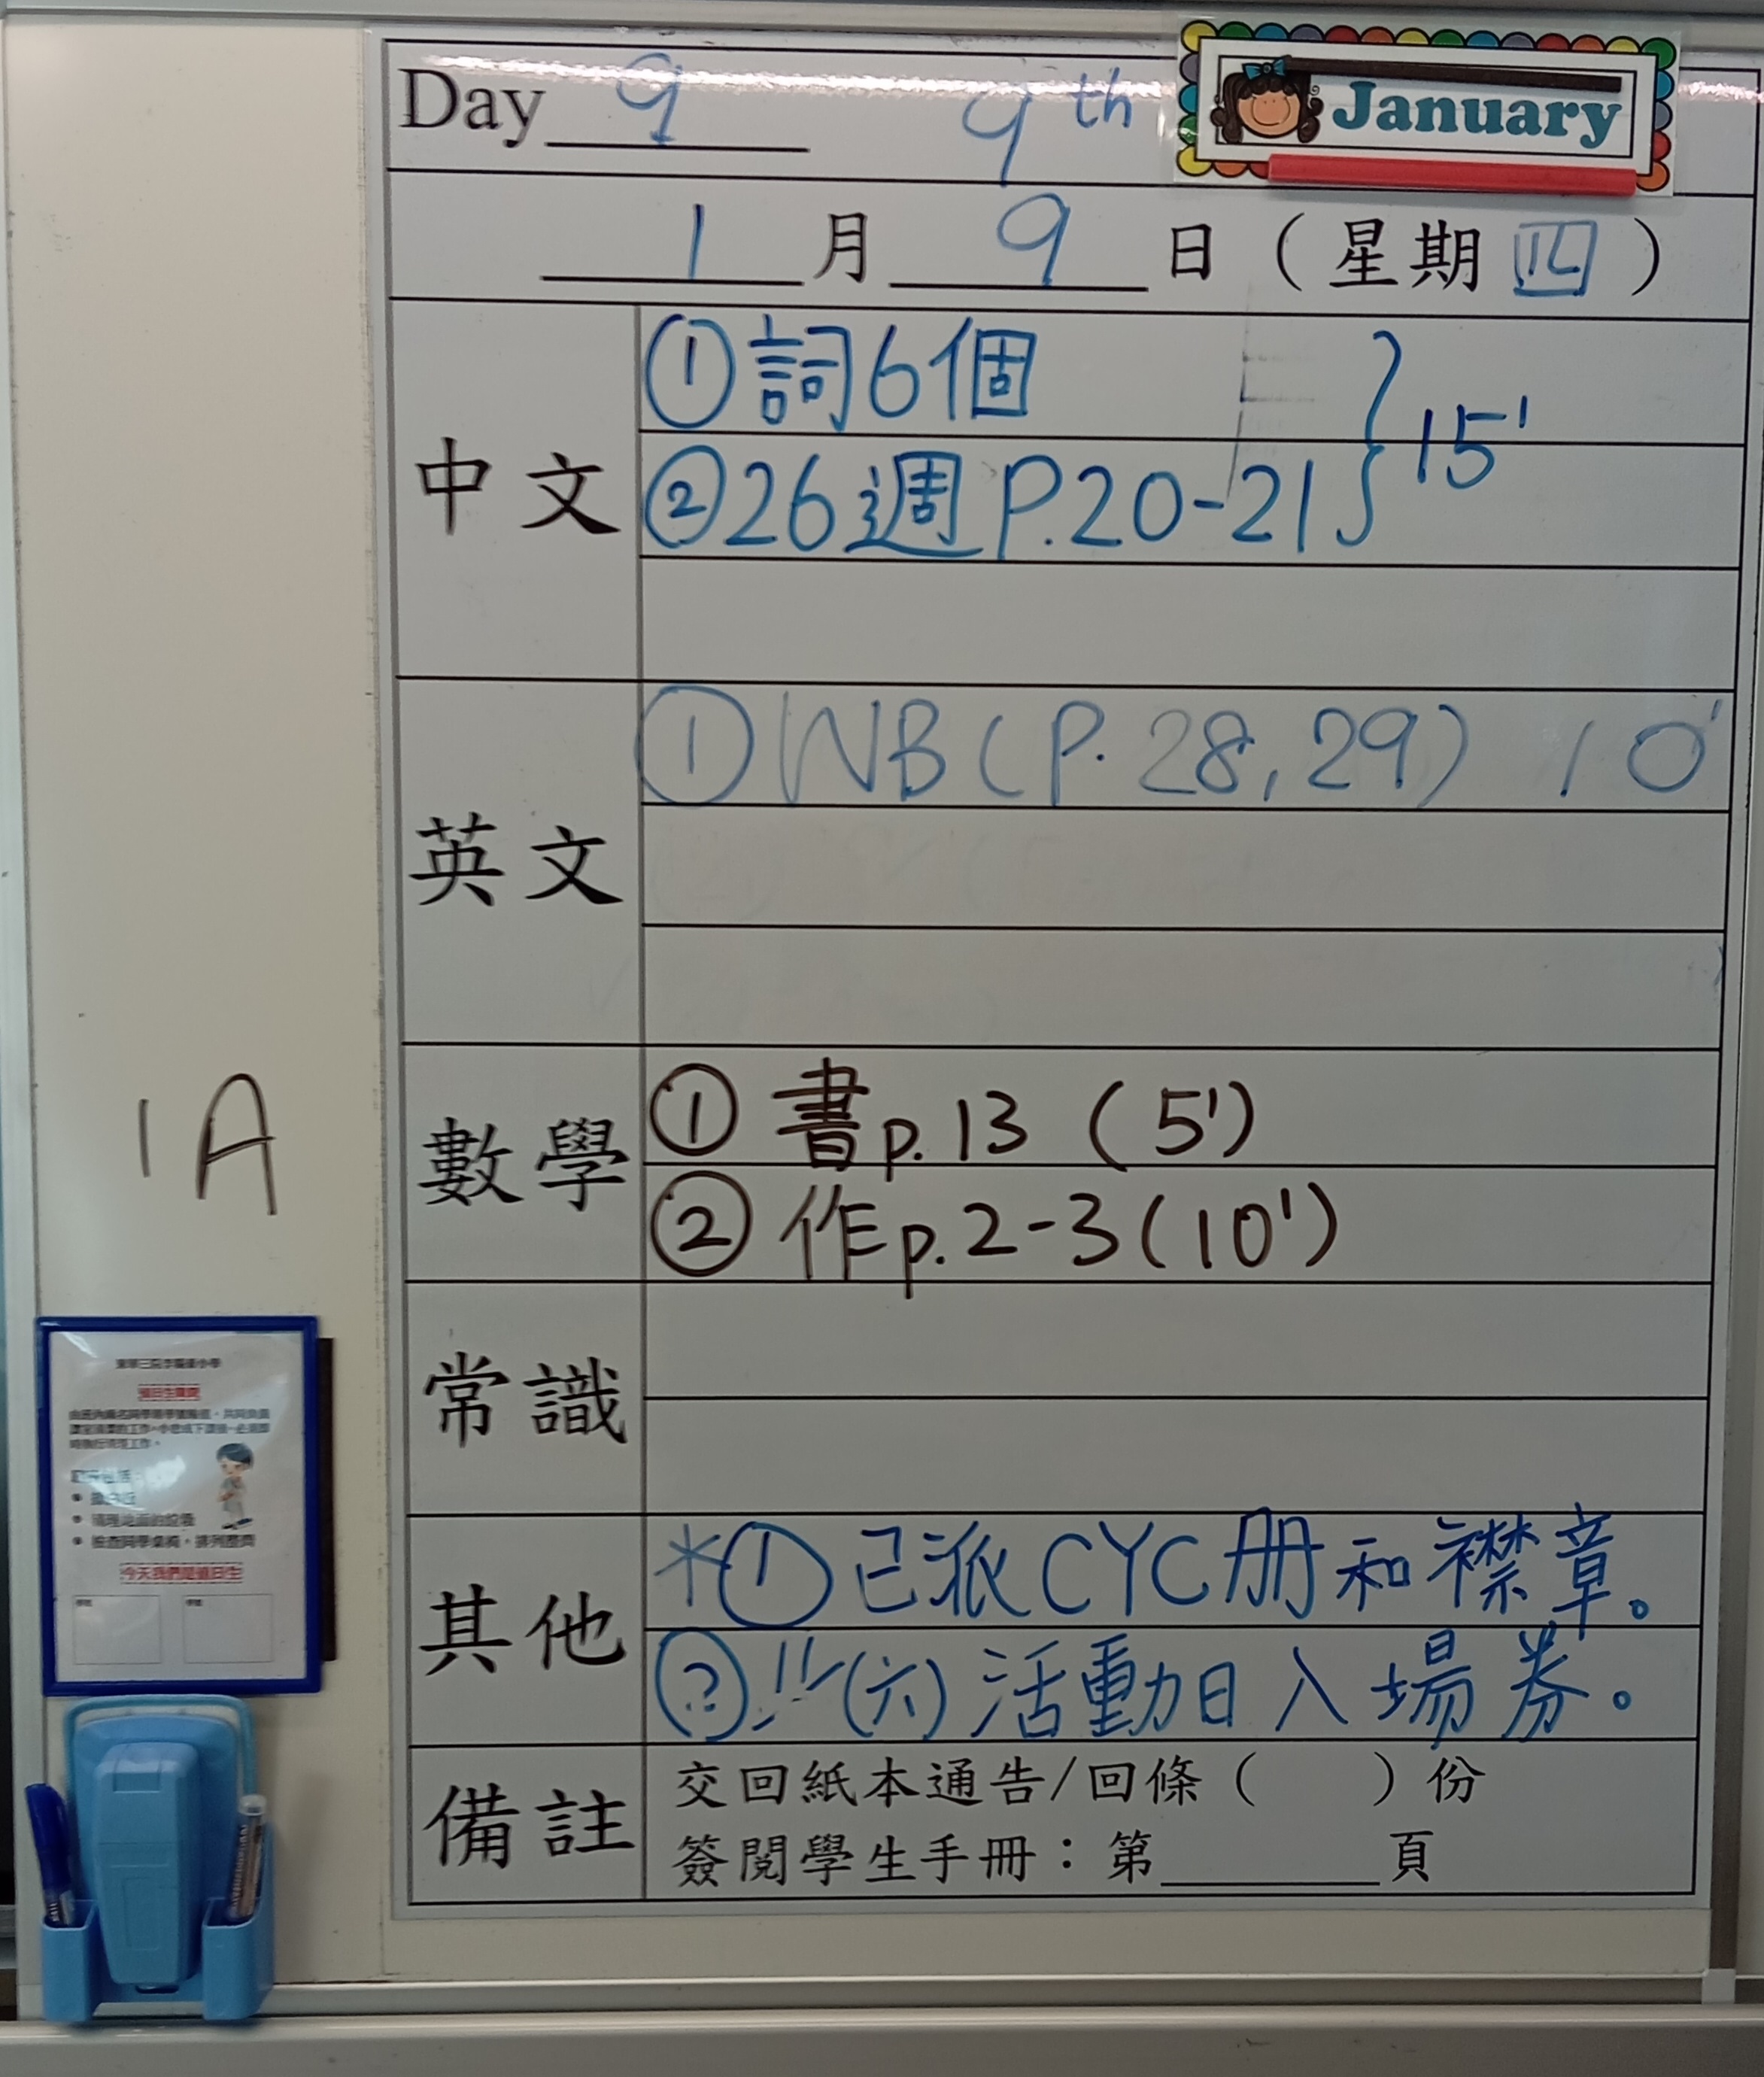 Day 9 9th January
1月9日（星期四）
中文
①詞6個
②26週 P.20-21 } 15'
英文
①WB(P.28,29) 10'
數學
① 書p.13 (5')
② 作p.2-3(10')
1A
常識
其他
*①已派CYC册和襟章。
(六)活動日入場券。
備註
交回紙本通告/回條（ ）份
簽閱學生手冊：第＿＿＿頁
值日生職責
今天我們是值日生